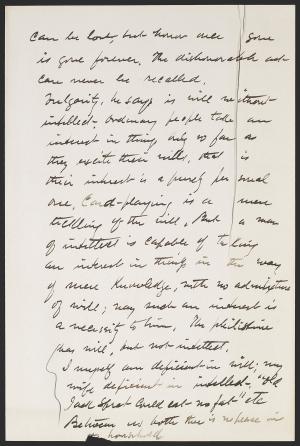 can be lost, but honor once gone
is gone forever. The dishonorable act
can never be recalled.
Vulgarity, he says is will without
intellect. Ordinary people take an
interest in things only so far as
they excite their wills, that is
their interest is a purely personal
one. Card-playing is a mere
tickling of the will. But a man
of intellect is capable of taking
an interest in things in the way
of mere knowledge, with no admixture
of will; nay such an interest is
a necessity to him. The philistine
has will, but not intellect.
I myself am deficient in will; my
wife deficient in intellect. "Old
Jack Sprat could eat no fat" etc
Between us both there is no peace in
household